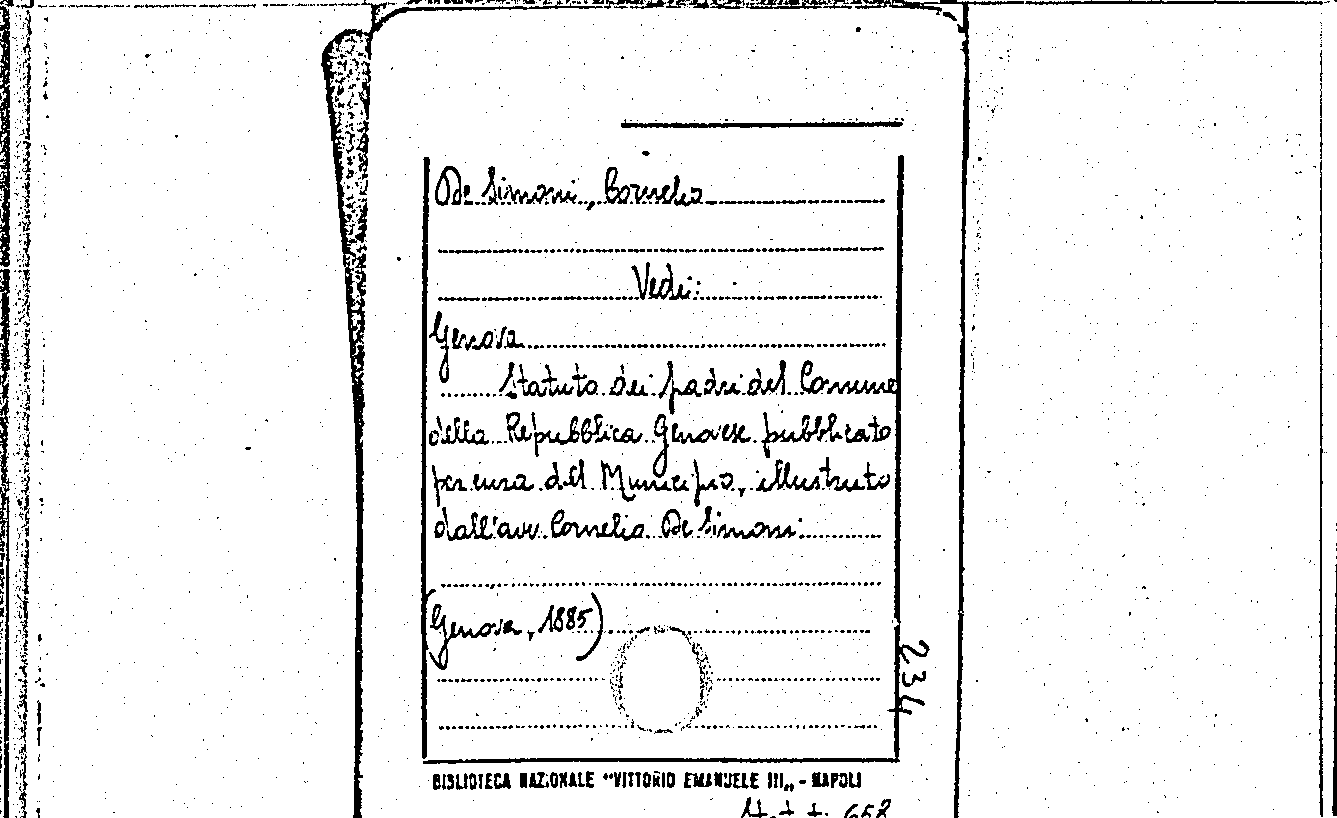 De Simoni, Cornelio
Vedi:
Genova
Statuto dei padri del Comune
della Repubblica Genovese pubblicato
per cura del Municipio, illustrato
dall'avv. Cornelio De Simoni
(Genova, 1885)
234
BIBLIOTECA NAZIONALE "VITTORIO EMANUELE III„ - NAPOLI
658